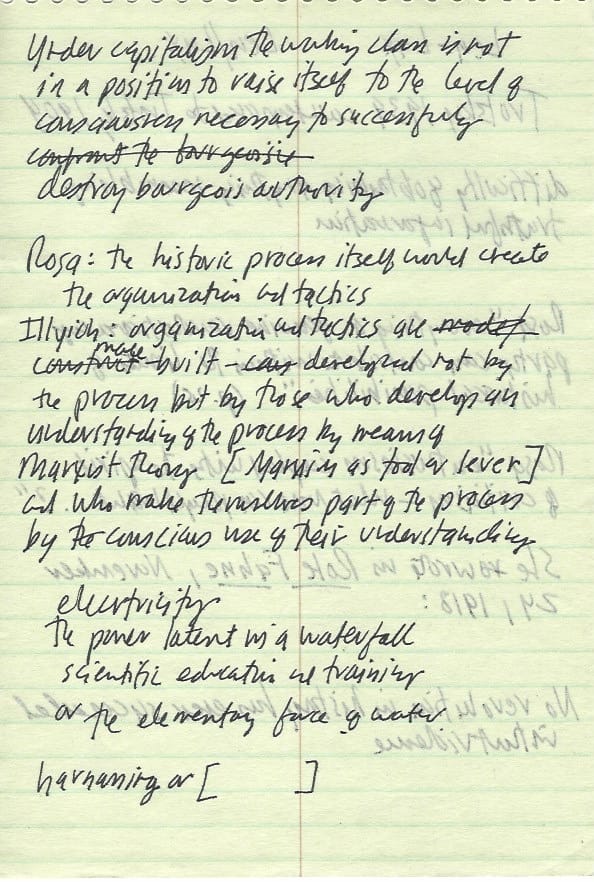 Under capitalism the working class is not
in a position to raise itself to the level of
consciousness necessary to successfully
confront the bourgeoisie
destroy bourgeois authority
Rosa: the historic process itself would create
the organization and tactics
Illyich: organization and tactics are model
made
construct built - can developed not by
the process but by those who develop an
understanding of the process by means of
Marxist theory [Marxism as tool or lever]
and who make themselves part of the process
by the conscious use of their understanding
electricity
the power latent in a waterfall
scientific education and training
or the elementary force of water
harnassing or [ ]